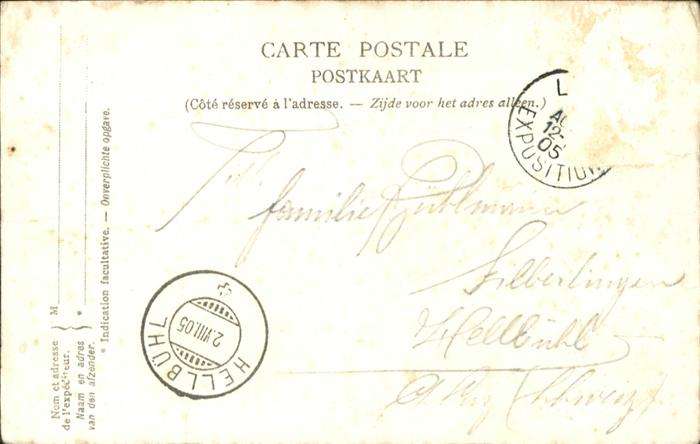 CARTE POSTALE
POSTKAART
(Côté réservé à l'adresse. — Zijde voor het adres alleen.)
L
AO
12-
05
EXPOSITION
familie
Hellbühl
Schweiz
HELLBÜHL
2.VIII.05
* Indication facultative. — Onverplichte opgave.
M
*
Nom et adresse
de l'expéditeur.
Naam en adres
van den afzender.